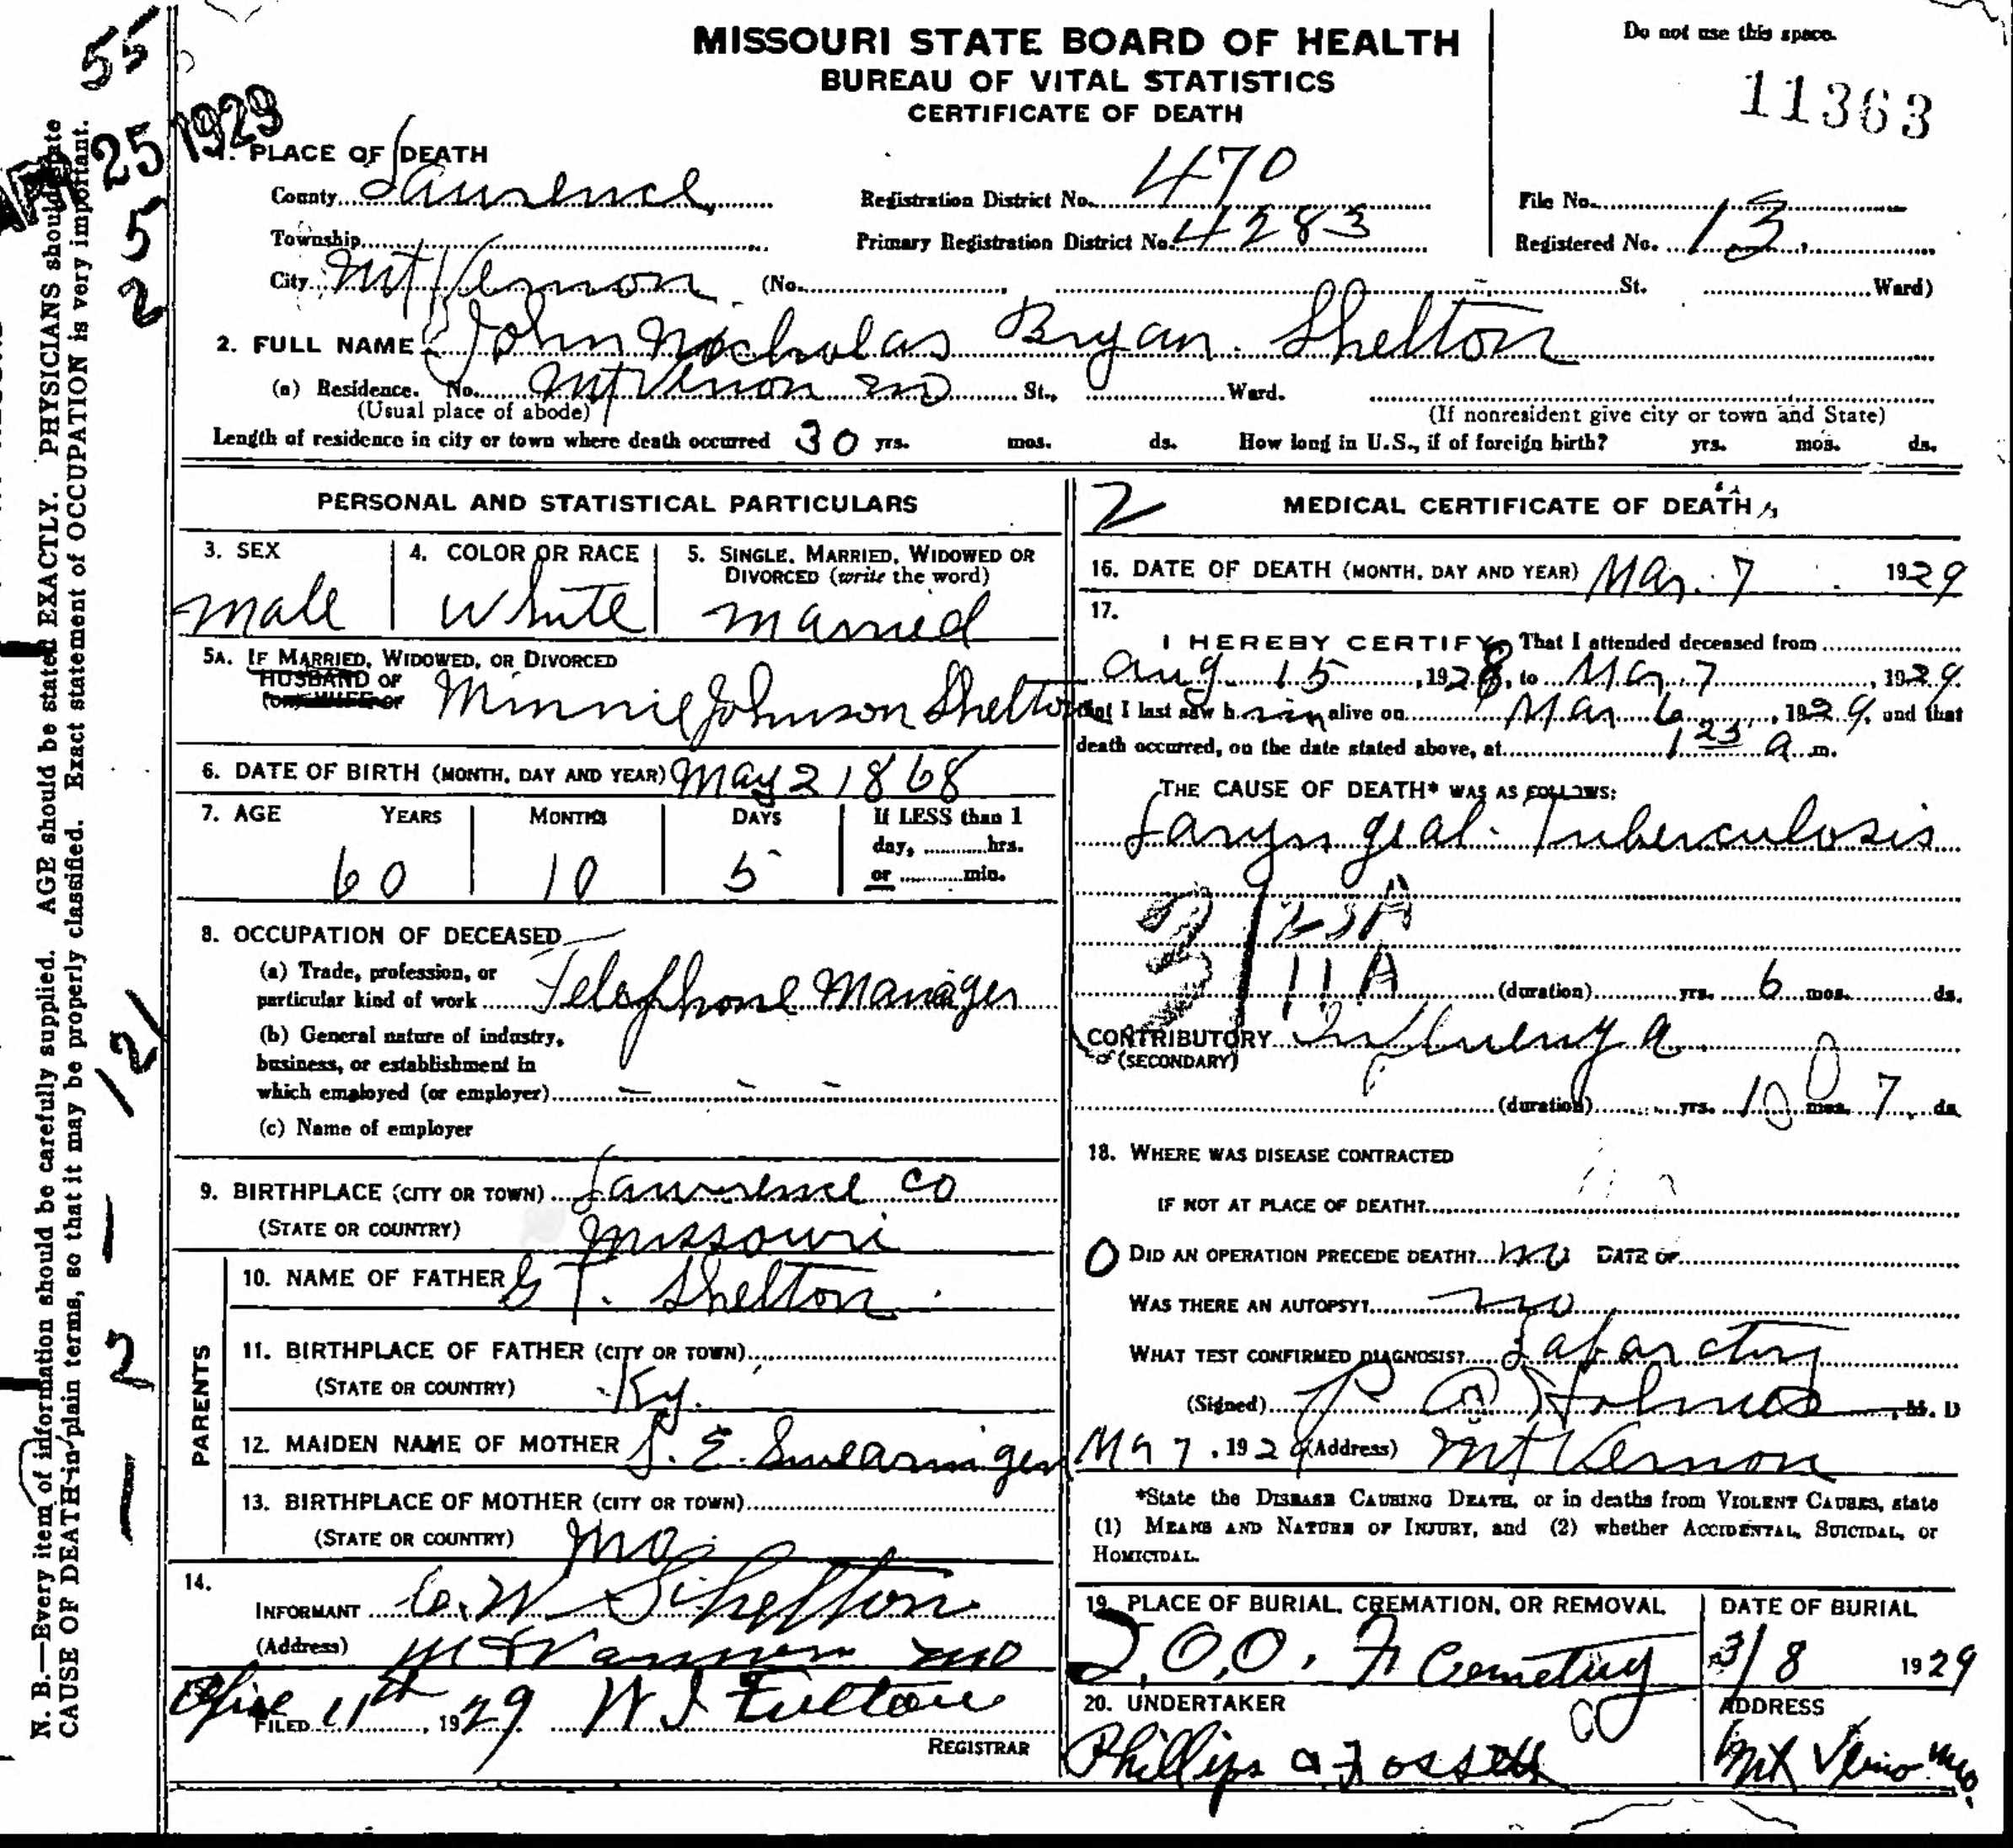 MISSOURI STATE BOARD OF HEALTH
BUREAU OF VITAL STATISTICS
CERTIFICATE OF DEATH
Do not use this space.
11363
55
25 1929
5
2
1. PLACE OF DEATH
County Lawrence
Registration District No. 470
File No.
Township
Primary Registration District No. 4283
Registered No. 13
City Mt Vernon (No. St. Ward)
2. FULL NAME John Nicholas Bryan Shelton
(a) Residence. No. Mt Vernon Mo St., Ward.
(Usual place of abode) (If nonresident give city or town and State)
Length of residence in city or town where death occurred 30 yrs. mos. ds. How long in U.S., if of foreign birth? yrs. mos. ds.
PERSONAL AND STATISTICAL PARTICULARS
3. SEX
male
4. COLOR OR RACE
White
5. SINGLE, MARRIED, WIDOWED OR
DIVORCED (write the word)
married
5A. IF MARRIED, WIDOWED, OR DIVORCED
HUSBAND OF
(OR) WIFE OF
Minnie Johnson Shelton
6. DATE OF BIRTH (MONTH, DAY AND YEAR) May 2 1868
7. AGE YEARS MONTHS DAYS If LESS than 1
day, hrs.
or min.
60 10 5
8. OCCUPATION OF DECEASED
(a) Trade, profession, or
particular kind of work Telephone Manager
(b) General nature of industry,
business, or establishment in
which employed (or employer)
(c) Name of employer
9. BIRTHPLACE (CITY OR TOWN) Lawrence Co
(STATE OR COUNTRY) Missouri
PARENTS
10. NAME OF FATHER G T. Shelton
11. BIRTHPLACE OF FATHER (CITY OR TOWN)
(STATE OR COUNTRY) Ky.
12. MAIDEN NAME OF MOTHER S. E. Swearingen
13. BIRTHPLACE OF MOTHER (CITY OR TOWN)
(STATE OR COUNTRY) Mo
14.
INFORMANT C. W Shelton
(Address) Mt Vernon Mo
FILED 11th, 1929
REGISTRAR
2
MEDICAL CERTIFICATE OF DEATH
16. DATE OF DEATH (MONTH, DAY AND YEAR) Mar. 7 1929
17.
I HEREBY CERTIFY, That I attended deceased from
Aug 15, 1928, to Mar. 7, 1929
that I last saw him alive on Mar 6, 1929, and that
death occurred, on the date stated above, at 1 25 a m.
THE CAUSE OF DEATH* WAS AS FOLLOWS:
Laryngeal Tuberculosis
23A
11A
(duration) yrs. 6 mos. ds.
CONTRIBUTORY Influenza
(SECONDARY)
(duration) yrs. mos. 7 ds.
18. WHERE WAS DISEASE CONTRACTED
IF NOT AT PLACE OF DEATH?
0 DID AN OPERATION PRECEDE DEATH? no DATE OF
WAS THERE AN AUTOPSY? no
WHAT TEST CONFIRMED DIAGNOSIS?
(Signed) Holmes, M. D
Mar 7, 1929 (Address) Mt Vernon
*State the DISEASE CAUSING DEATH, or in deaths from VIOLENT CAUSES, state
(1) MEANS AND NATURE OF INJURY, and (2) whether ACCIDENTAL, SUICIDAL, or
HOMICIDAL.
19. PLACE OF BURIAL, CREMATION, OR REMOVAL
I.O.O.F Cemetery
DATE OF BURIAL
3/8 1929
20. UNDERTAKER
Phillips & Fossett
ADDRESS
Mt Mo.
N. B.—Every item of information should be carefully supplied. AGE should be stated EXACTLY. PHYSICIANS should state
CAUSE OF DEATH in plain terms, so that it may be properly classified. Exact statement of OCCUPATION is very important.